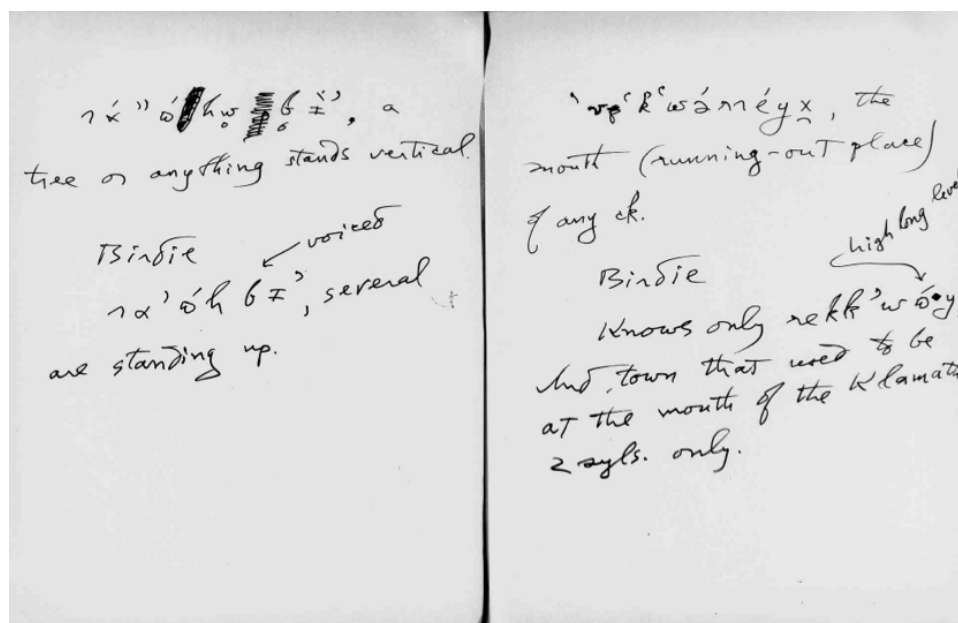 a
tree or anything stands vertical.
Birdie
voiced
several
are standing up.
the
mouth (running-out place)
of any ck.
high long level
Birdie
Knows only rekk'wó·y,
Ind. town that used to be
at the mouth of the Klamath
2 syls. only.